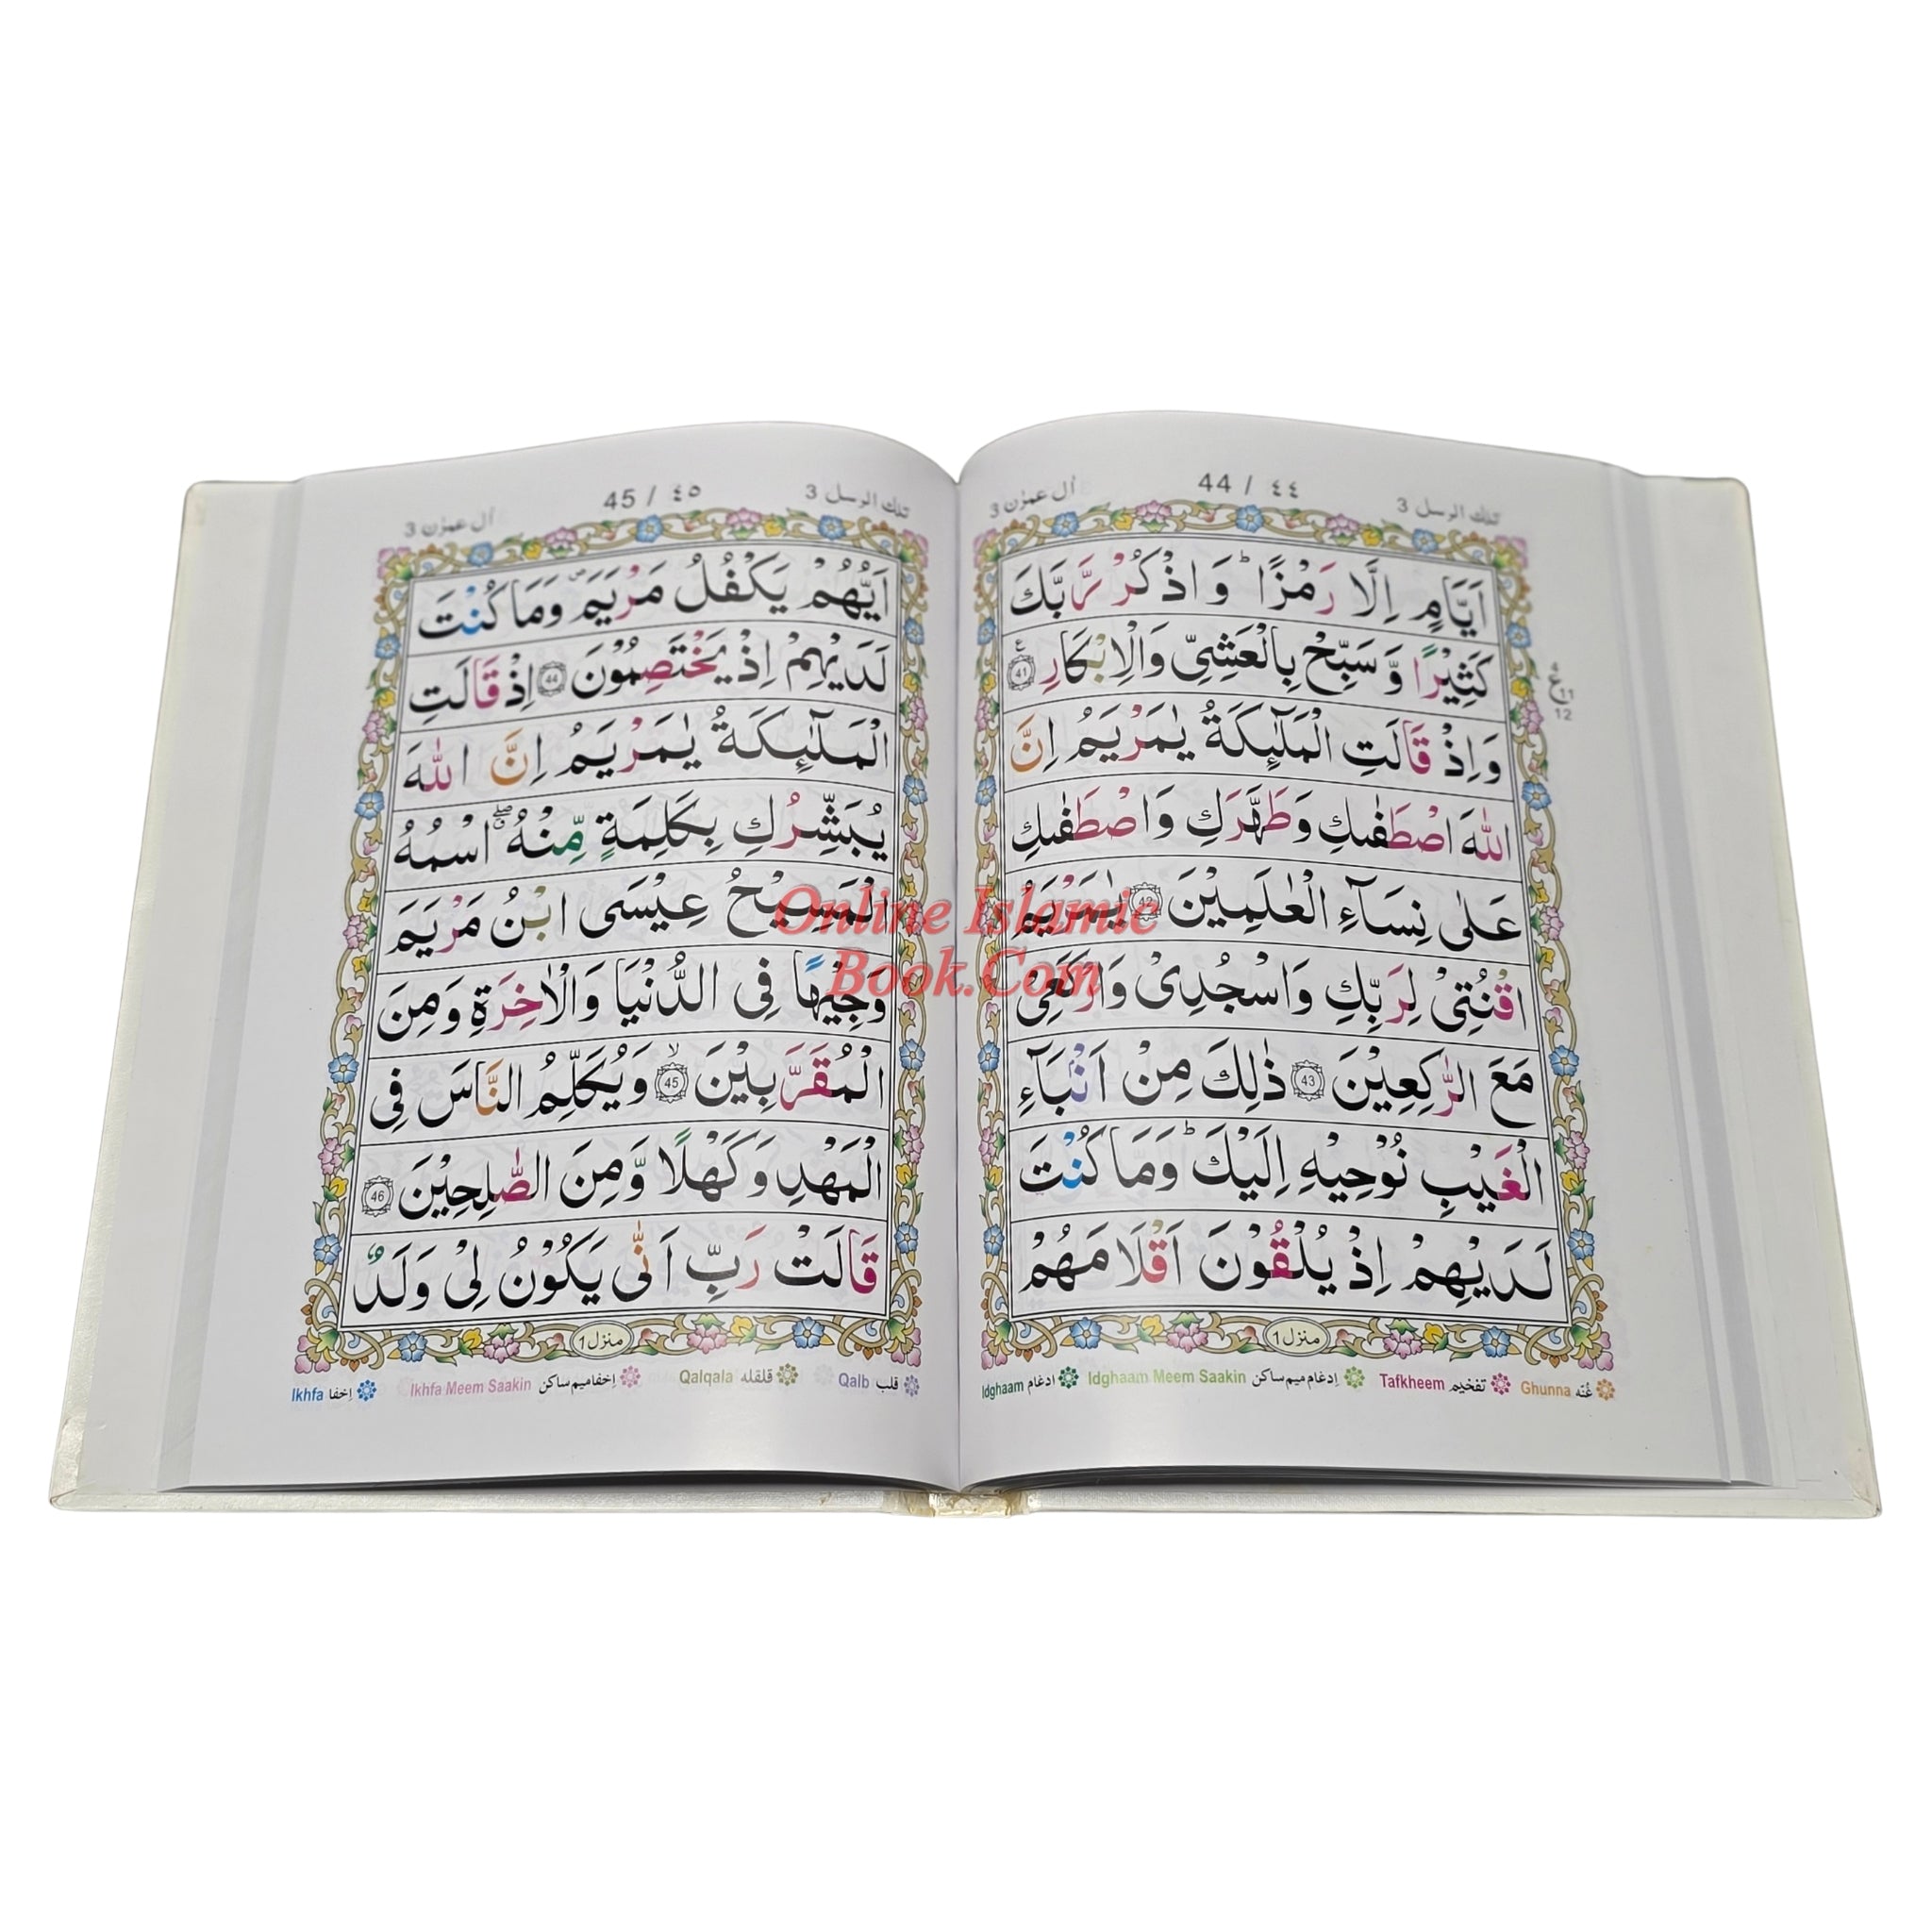 تلك الرسل 3
44 / ٤٤
اٰل عمرٰن 3
اَيَّامٍ اِلَّا رَمْزًا ؕ وَ اذْكُرْ رَّبَّكَ
كَثِيْرًا وَّ سَبِّحْ بِالْعَشِىِّ وَالْاِبْكَارِ ۝41 ع
وَ اِذْ قَالَتِ الْمَلٰٓئِكَةُ يٰمَرْيَمُ اِنَّ
اللّٰهَ اصْطَفٰىكِ وَطَهَّرَكِ وَاصْطَفٰىكِ
عَلٰى نِسَآءِ الْعٰلَمِيْنَ ۝42 يٰمَرْيَمُ
اقْنُتِىْ لِرَبِّكِ وَاسْجُدِىْ وَارْكَعِىْ
مَعَ الرّٰكِعِيْنَ ۝43 ذٰلِكَ مِنْ اَنْۢبَآءِ
الْغَيْبِ نُوْحِيْهِ اِلَيْكَ ؕ وَمَا كُنْتَ
لَدَيْهِمْ اِذْ يُلْقُوْنَ اَقْلَامَهُمْ
4
ع 11
12
منزل 1
غُنّه Ghunna
تفخيم Tafkheem
اِدغام ميم ساكن Idghaam Meem Saakin
ادغام Idghaam
تلك الرسل 3
45 / ٤٥
اٰل عمرٰن 3
اَيُّهُمْ يَكْفُلُ مَرْيَمَ ۪ وَمَا كُنْتَ
لَدَيْهِمْ اِذْ يَخْتَصِمُوْنَ ۝44 اِذْ قَالَتِ
الْمَلٰٓئِكَةُ يٰمَرْيَمُ اِنَّ اللّٰهَ
يُبَشِّرُكِ بِكَلِمَةٍ مِّنْهُ ۖۗ اسْمُهُ
الْمَسِيْحُ عِيْسَى ابْنُ مَرْيَمَ
وَجِيْهًا فِى الدُّنْيَا وَالْاٰخِرَةِ وَمِنَ
الْمُقَرَّبِيْنَ ۙ ۝45 وَيُكَلِّمُ النَّاسَ فِى
الْمَهْدِ وَكَهْلًا وَّمِنَ الصّٰلِحِيْنَ ۝46
قَالَتْ رَبِّ اَنّٰى يَكُوْنُ لِىْ وَلَدٌ
منزل 1
قلب Qalb
قلقله Qalqala
اِخفا ميم ساكن Ikhfa Meem Saakin
اِخفا Ikhfa
Online Islamic
Book.Com